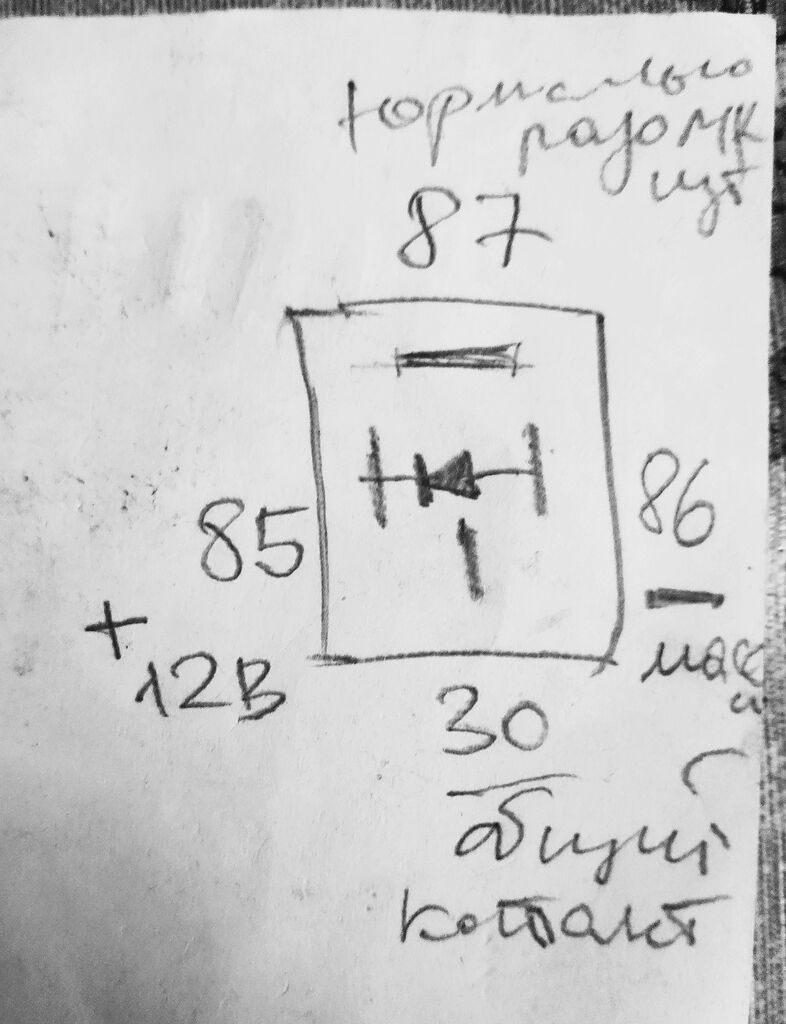 нормально
разомк
нут
87
85
86
+
12В
—
масс
а
30
общий
контакт